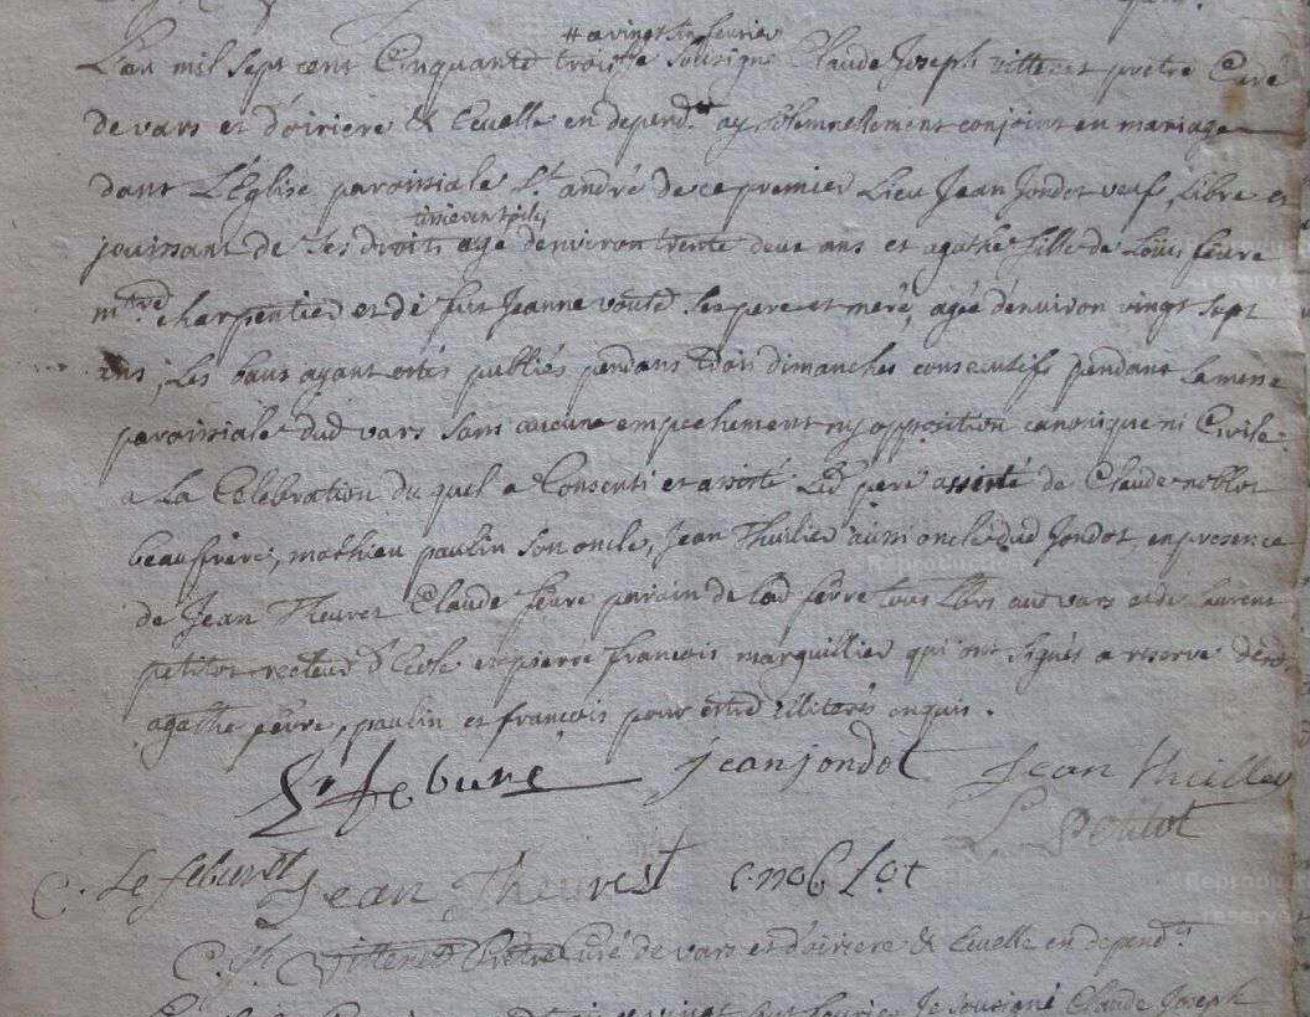 # a vingt six fevrier
L'an mil sept cent Cinquante trois # Je sousigné Claude Joseph vitteret pretre Curé
de vars et d'oiriere & Ecuelle en depend.te ay solemnellement conjoint en mariage
dans L'Eglise paroissiale S.t andré de ce premier Lieu Jean Jondot veuf, Libre et
jouissant de ses droits agé denviron trente deux ans et agathe fille de Loüis fevre
m.tre charpentier et de fut Jeanne voute ses pere et mere, agée denviron vingt sept
ans, Les bans ayant estés publiés pendant trois dimanches consecutifs pendant la messe
paroissiale dud vars sans aucune empechement ny opposition canonique ni Civile
a La Celebration du quel a Consenti et assisté Led pere assisté de Claude noblot
beaufrere, mathieu paulin son oncle, Jean Thuilier aussi oncle dud Jondot, en presence
de Jean Theuret Claude fevre parain de lad fevre tous Lbrs aud vars et de Laurent
petitot recteur d'Ecole et pierre francois marguillier qui ont signés a reserve de
agathe fevre, paulin et francois pour estre illiterés enquis.
Lefebure jean jondot Jean thuilley
L. Petitot
C. Lefebure Jean Theuret C. noblot
C. J. Vitteret Pretre Curé de vars et d'oiriere & Ecuelle en depend.te
fevrier Je sousigné Claude Joseph